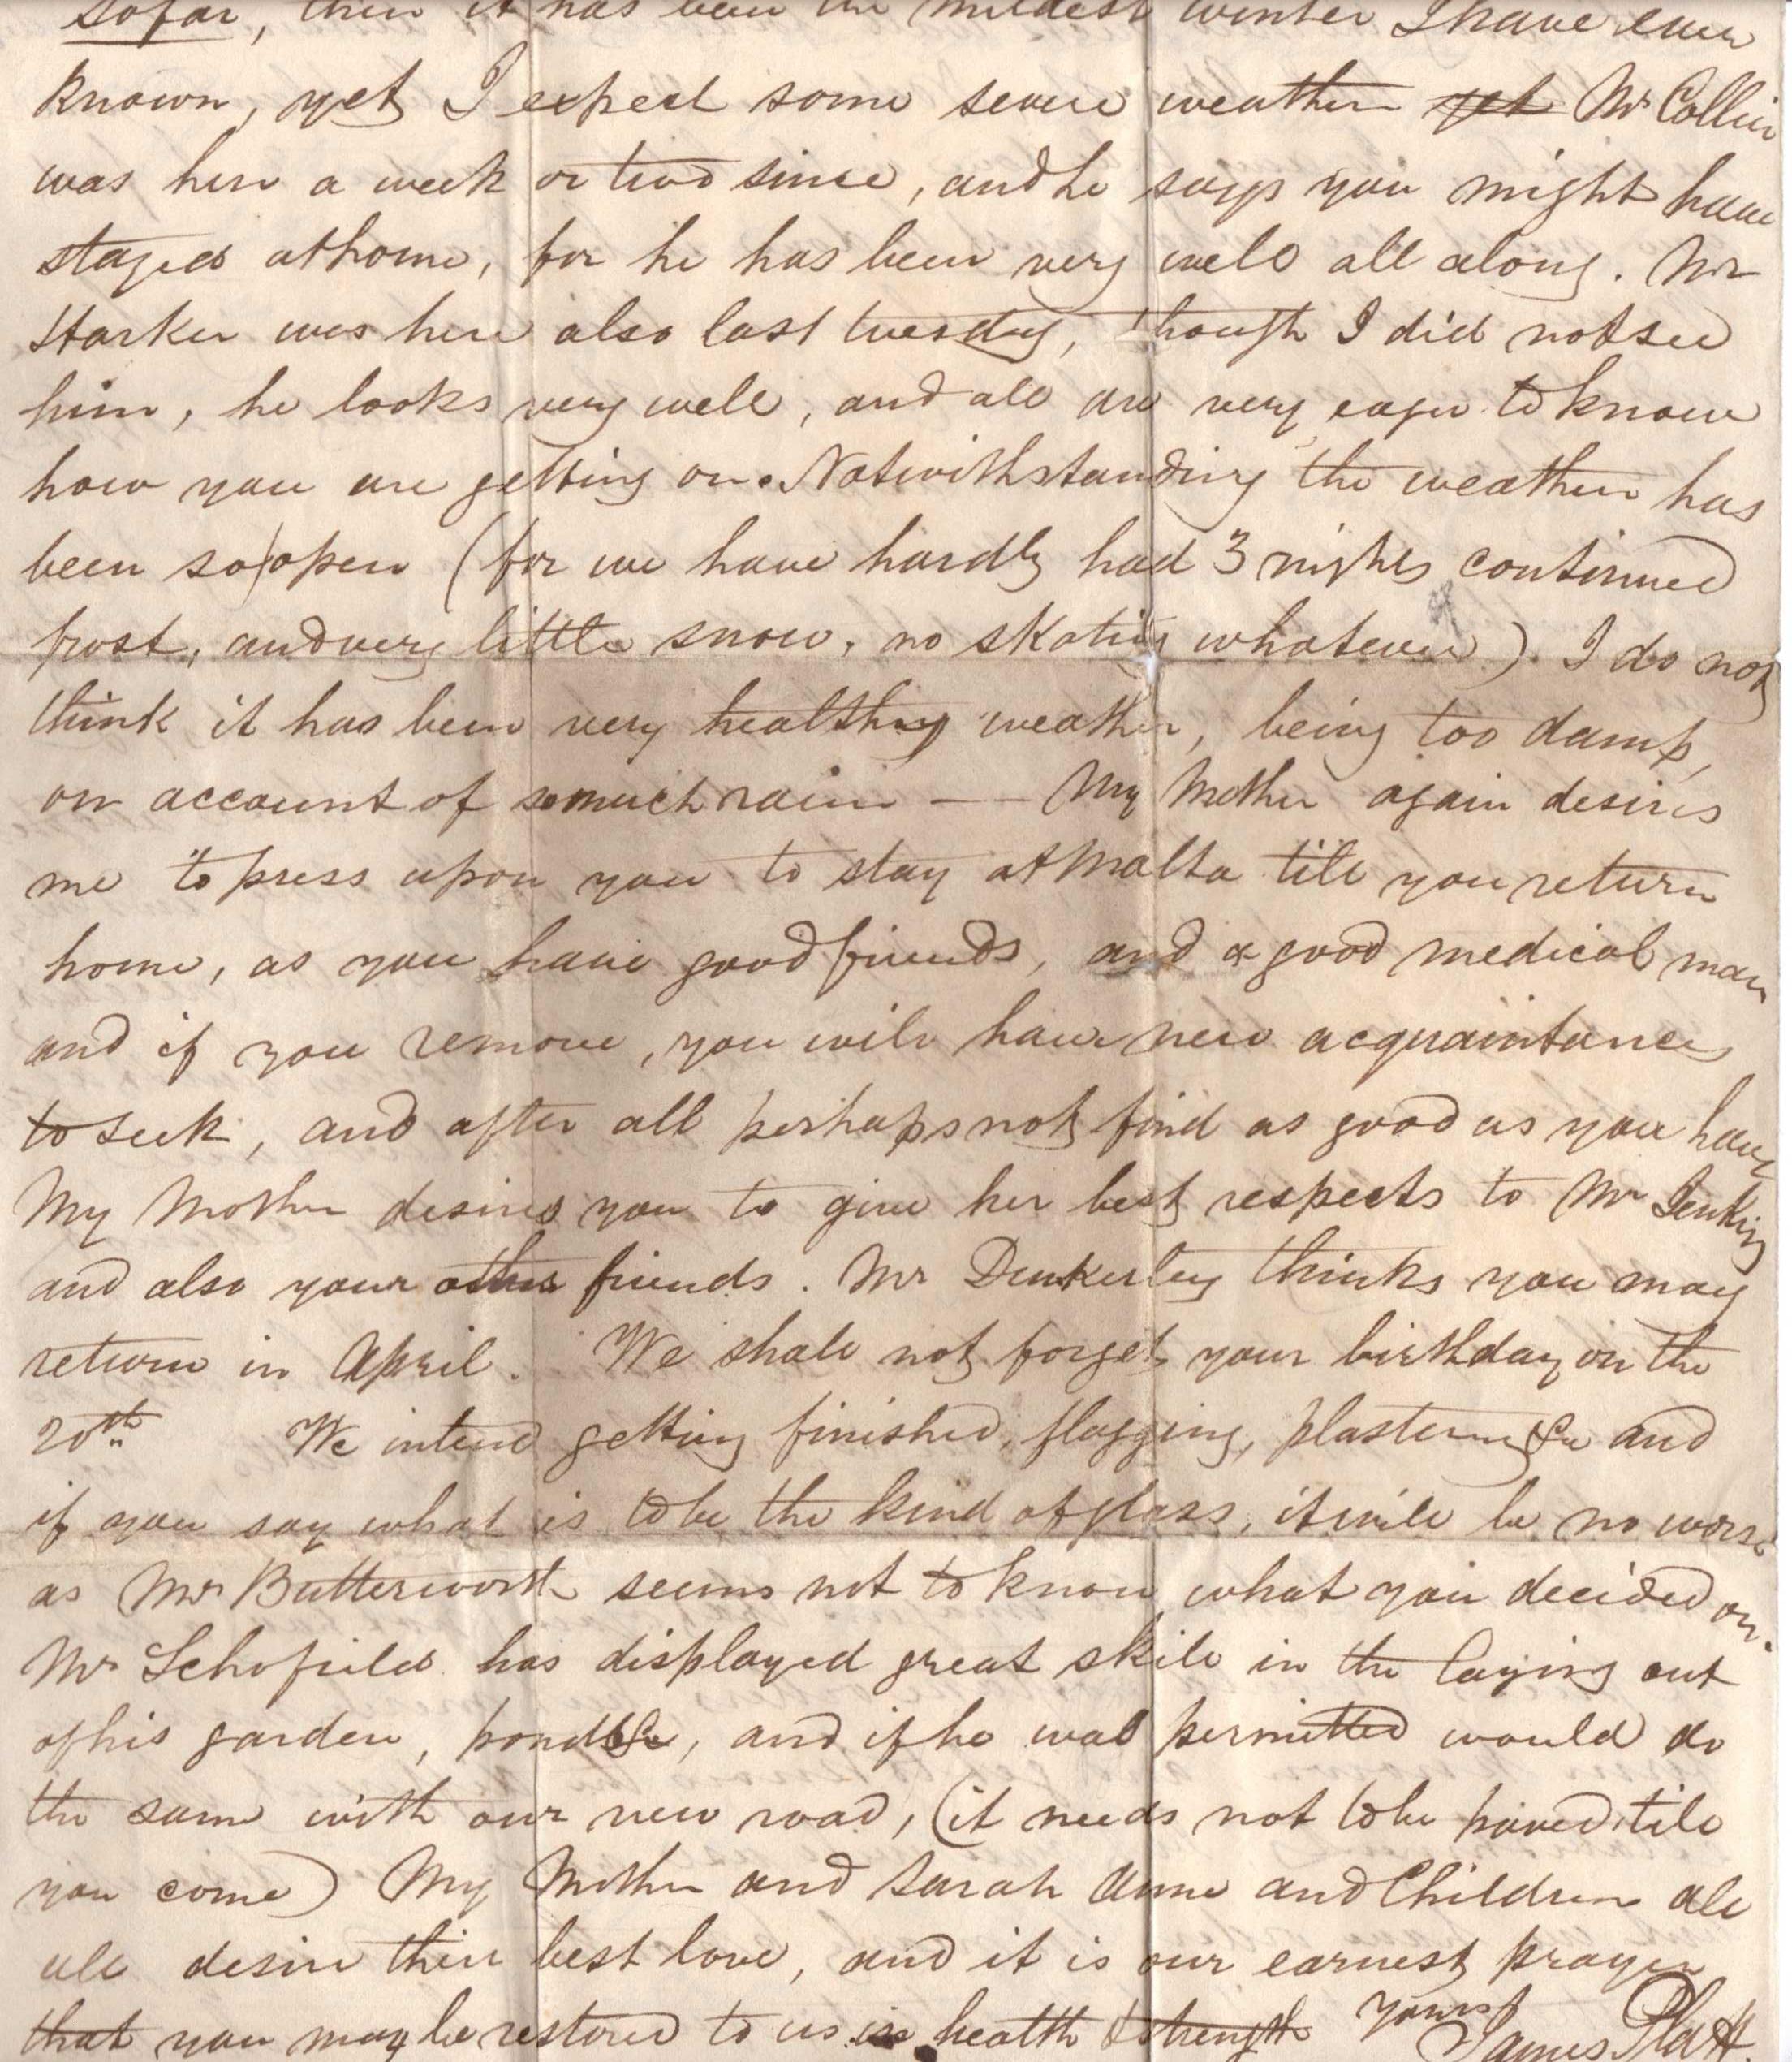 so far, then it has been the mildest winter I have ever
known, yet I expect some severe weather yet Mr Collin
was here a week or two since, and he says you might have
stayed at home, for he has been very well all along. Mr
Harker was here also last tuesday, though I did not see
him, he looks very well, and all are very eager to know
how you are getting on. Notwithstanding the weather has
been so open (for we have hardly had 3 nights continued
frost, and very little snow, no skating whatever). I do not
think it has been very healthy weather, being too damp,
on account of so much rain —— My Mother again desires
me to press upon you to stay at Malta till you return
home, as you have good friends, and a good medical man
and if you remove, you will have new acquaintances
to seek, and after all perhaps not find as good as you have
My Mother desires you to give her best respects to Mr Jenkins
and also your other friends. Mr Dunkerley thinks you may
return in April. We shall not forget your birthday on the
20th We intend getting finished, flagging, plastering &c and
if you say what is to be the kind of glass, it will be no worse
as Mr Butterworth seems not to know what you decided on.
Mr Schofield has displayed great skill in the laying out
of his garden, pond &c, and if he was permitted would do
the same with our new road, (it needs not to be paved till
you come) My Mother and Sarah Anne and Children all
all desire their best love, and it is our earnest prayer
that you may be restored to us in health & strength Yours
James Platt